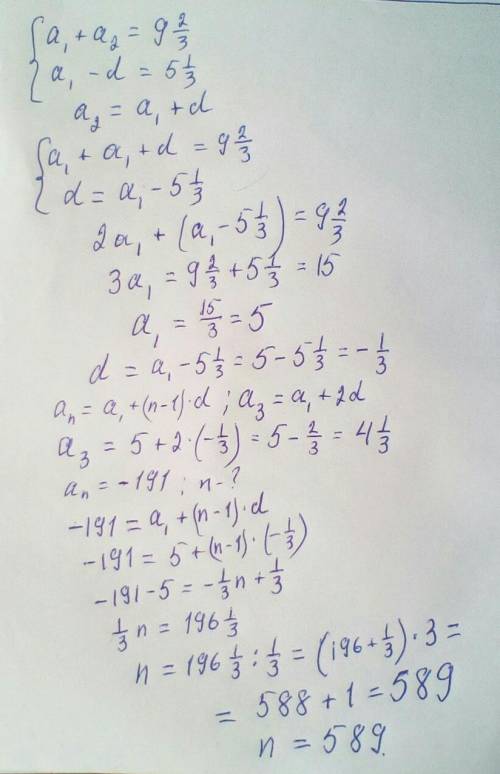 a₁ + a₂ = 9 2/3
a₁ - d = 5 1/3
a₂ = a₁ + d
a₁ + a₁ + d = 9 2/3
d = a₁ - 5 1/3
2a₁ + (a₁ - 5 1/3) = 9 2/3
3a₁ = 9 2/3 + 5 1/3 = 15
a₁ = 15/3 = 5
d = a₁ - 5 1/3 = 5 - 5 1/3 = - 1/3
aₙ = a₁ + (n-1)·d ; a₃ = a₁ + 2d
a₃ = 5 + 2·(-1/3) = 5 - 2/3 = 4 1/3
aₙ = -191 ; n - ?
-191 = a₁ + (n-1)·d
-191 = 5 + (n-1)·(-1/3)
-191 - 5 = -1/3 n + 1/3
1/3 n = 196 1/3
n = 196 1/3 : 1/3 = (196 + 1/3)·3 =
= 588 + 1 = 589
n = 589.